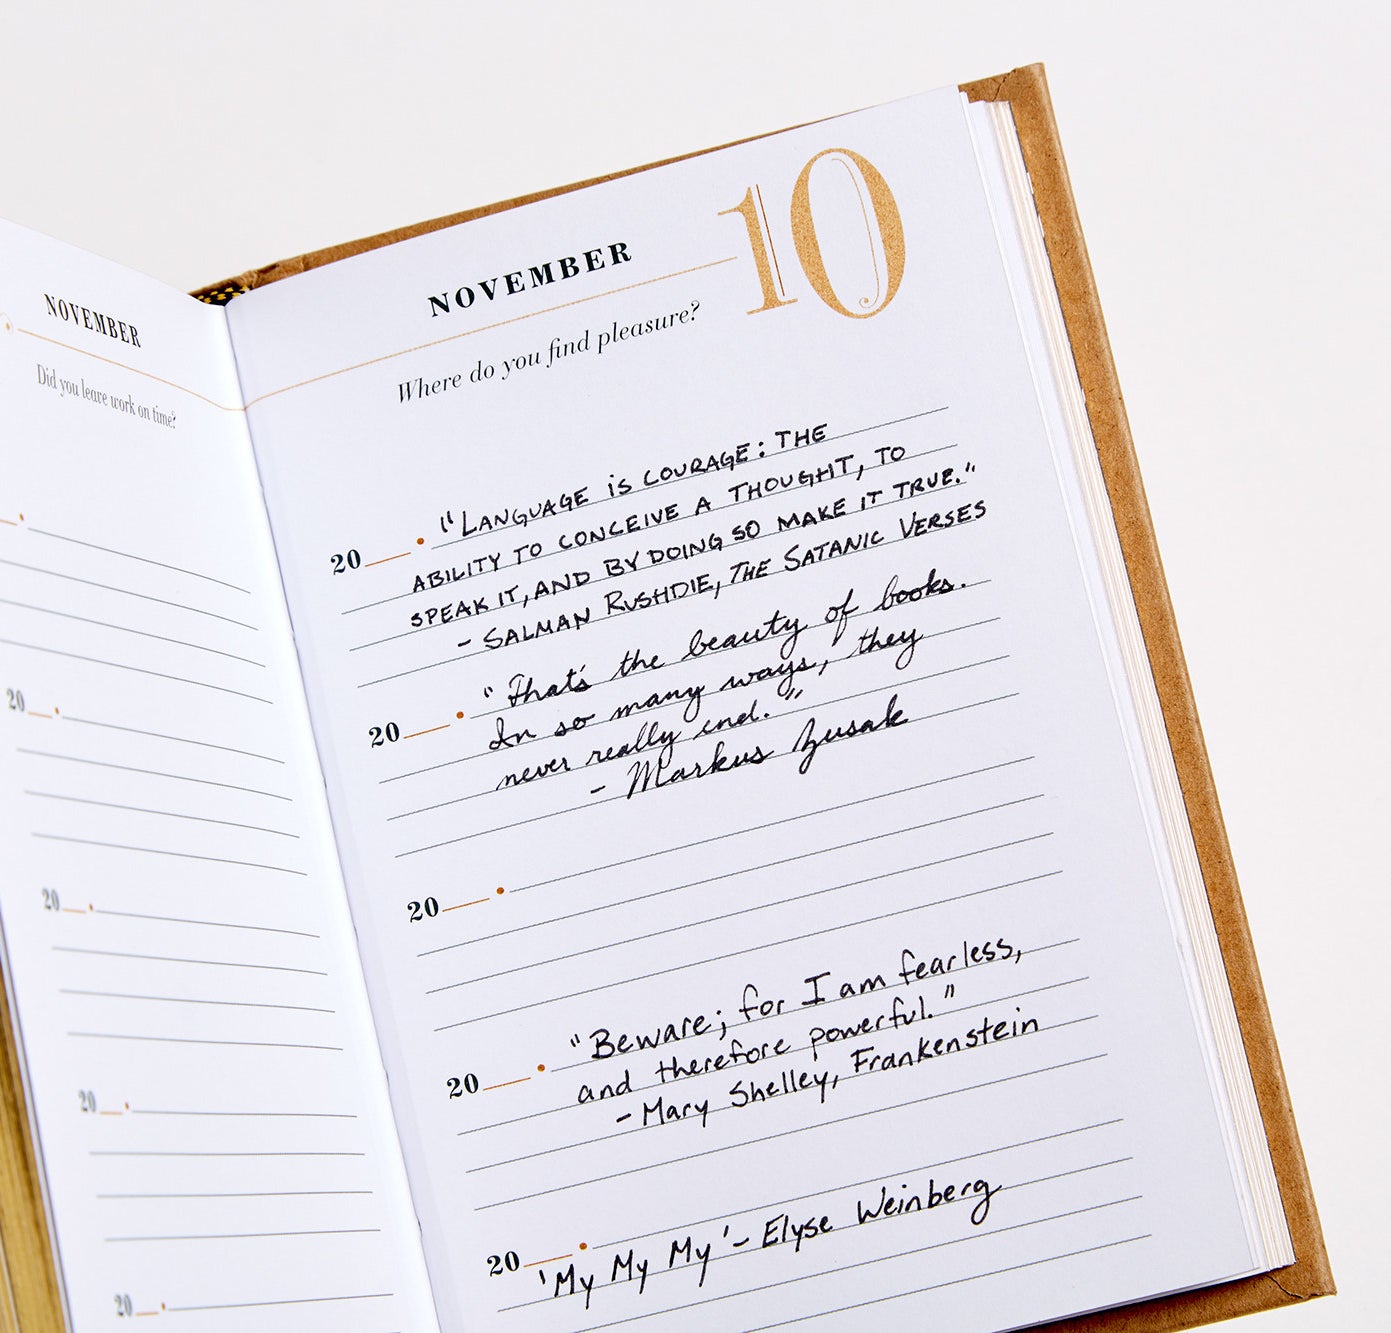 NOVEMBER
Did you leave work on time?
20
20
20
20
NOVEMBER
10
Where do you find pleasure?
20
"LANGUAGE IS COURAGE: THE
ABILITY TO CONCEIVE A THOUGHT, TO
SPEAK IT, AND BY DOING SO MAKE IT TRUE."
- SALMAN RUSHDIE, THE SATANIC VERSES
20
"That's the beauty of books.
In so many ways, they
never really end."
- Markus Zusak
20
20
"Beware; for I am fearless,
and therefore powerful."
- Mary Shelley, Frankenstein
20
'My My My' - Elyse Weinberg